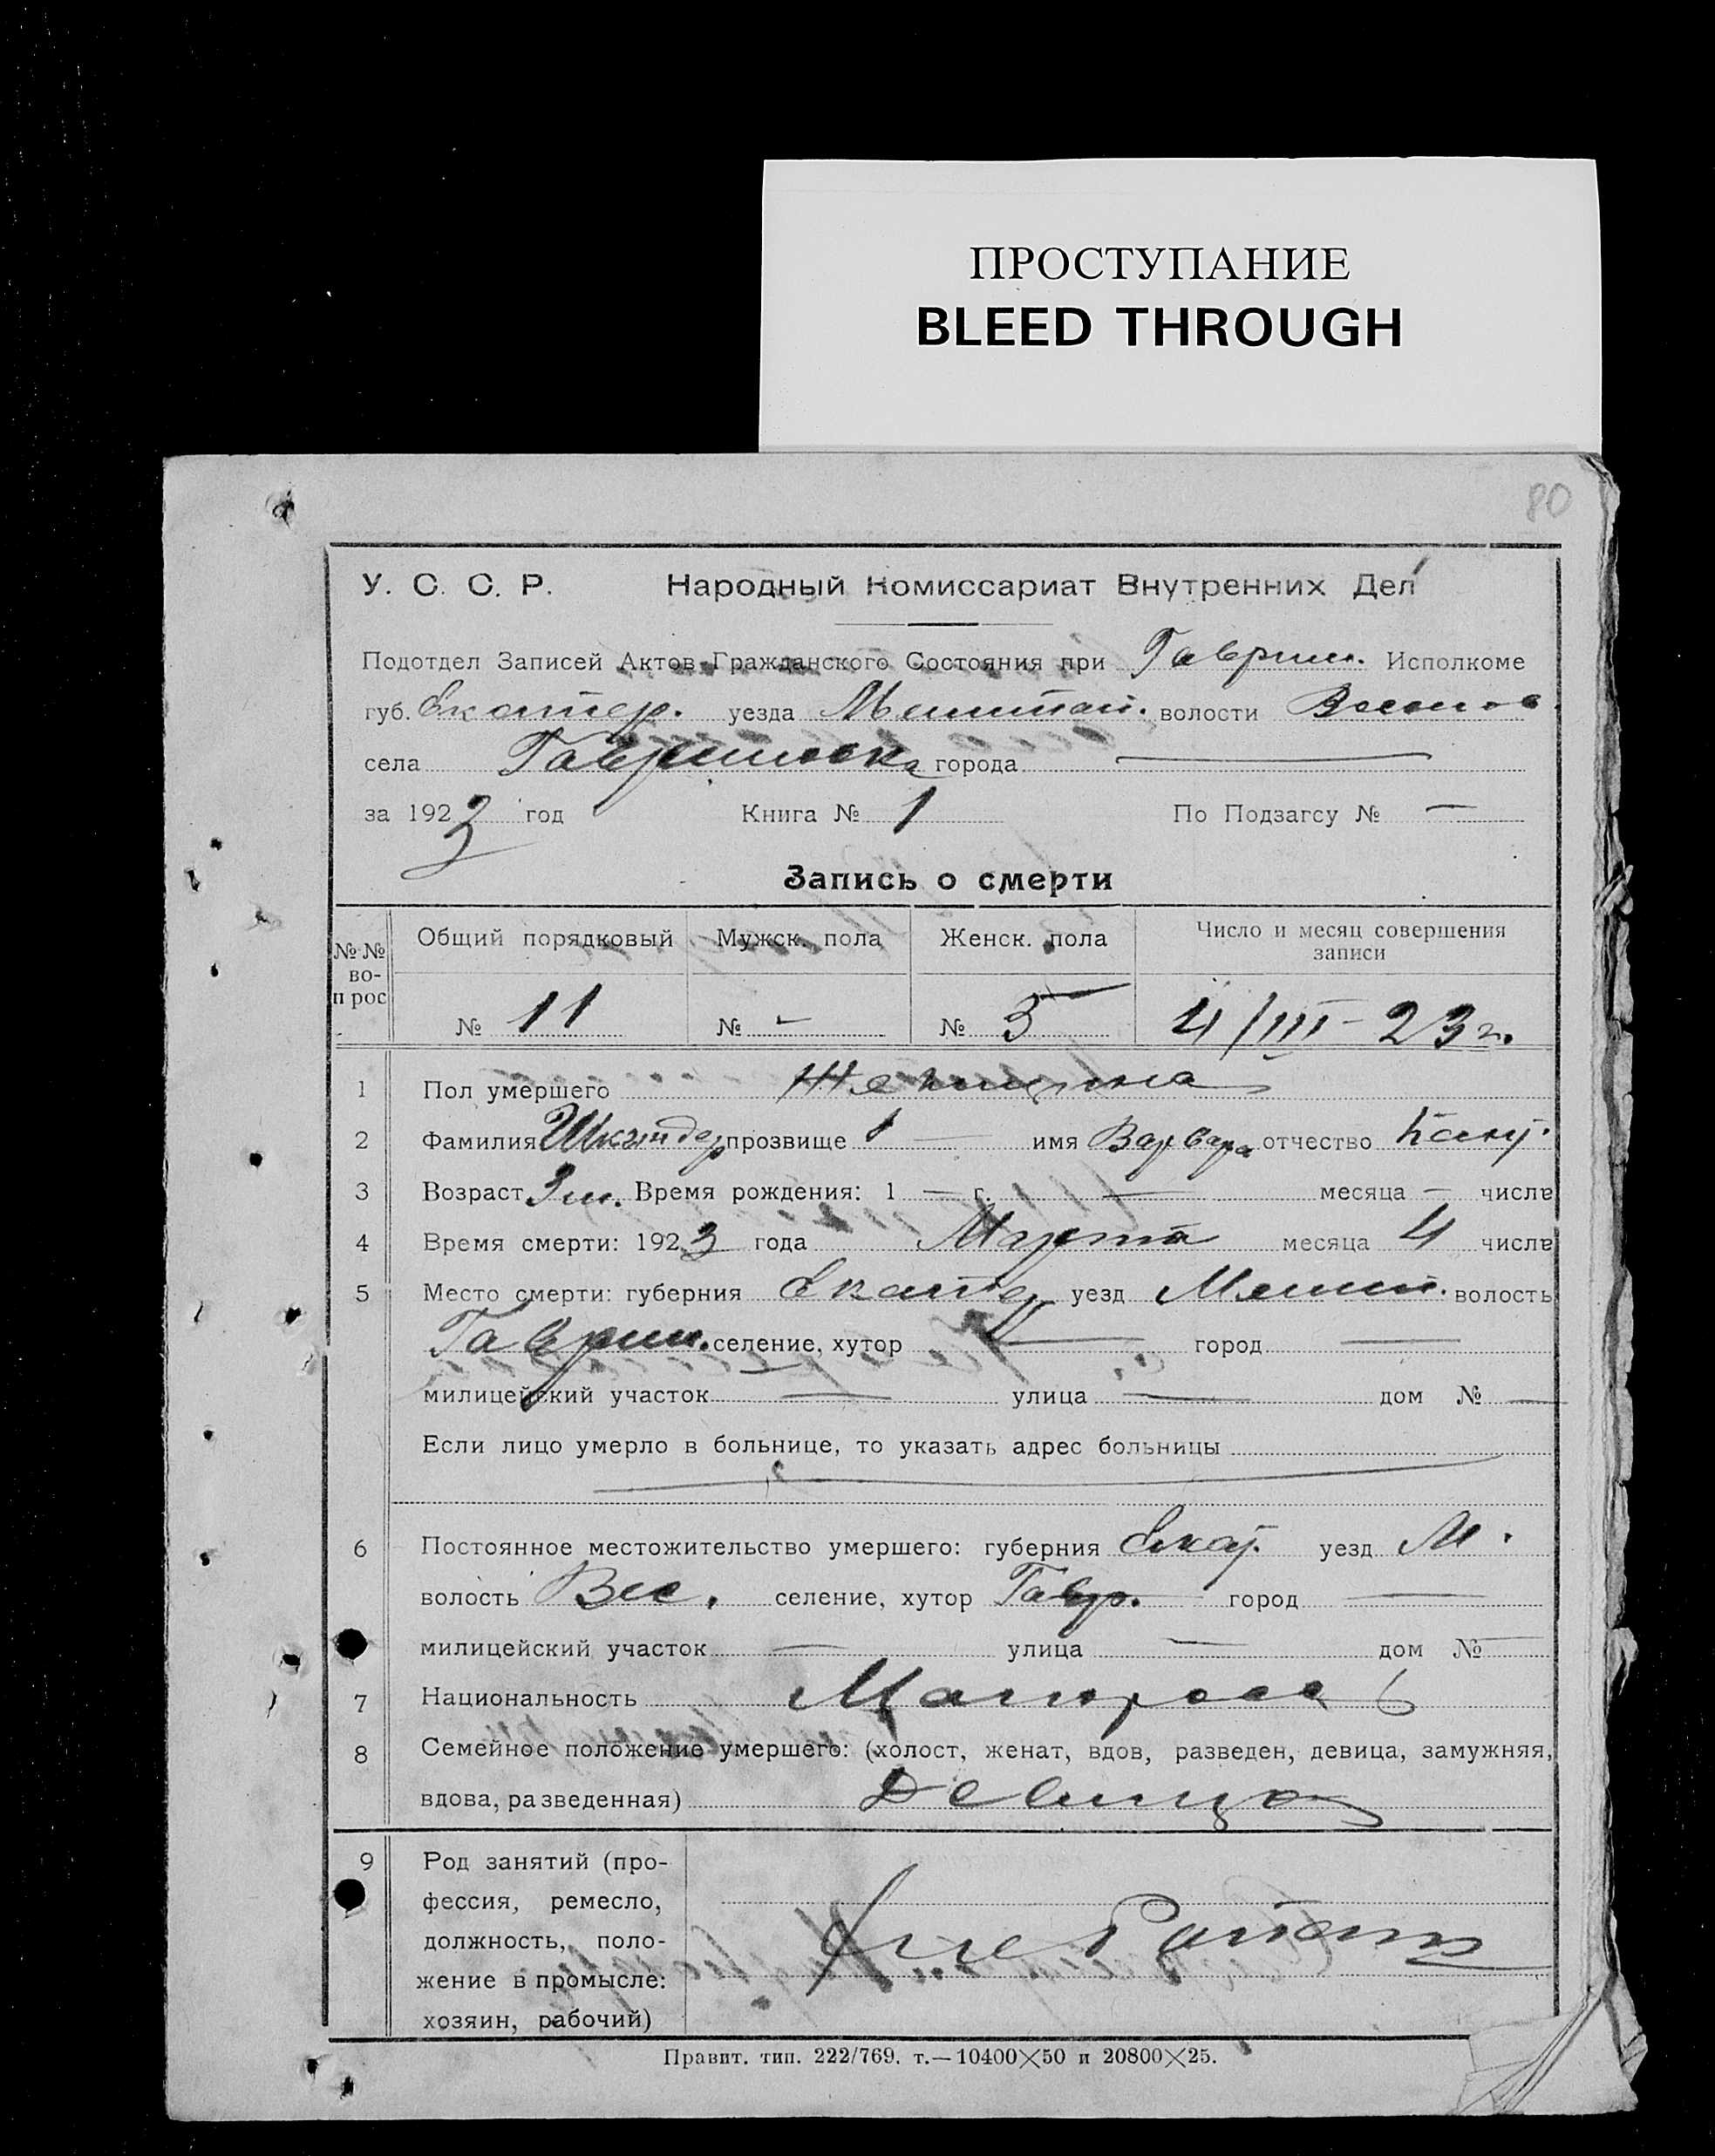 ПРОСТУПАНИЕ
BLEED THROUGH
80
У. С. С. Р. Народный Комиссариат Внутренних Дел
Подотдел Записей Актов Гражданского Состояния при Гаврил. Исполкоме
губ. Екатер. уезда волости
села города —
за 1923 год Книга № 1 По Подзагсу № —
Запись о смерти
№№ во- п рос Общий порядковый Мужск. пола Женск. пола Число и месяц совершения записи
№ 11 № - № 5 4/III - 23 г.
1 Пол умершего Женщина
2 Фамилия прозвище — имя Варвара отчество
3 Возраст Время рождения: 1 — г. — месяца — числа
4 Время смерти: 1923 года Марта месяца 4 числа
5 Место смерти: губерния Екатер уезд волость
Гаврил. селение, хутор — город —
милицейский участок — улица — дом № —
Если лицо умерло в больнице, то указать адрес больницы
6 Постоянное местожительство умершего: губерния Екат. уезд М.
волость Вес. селение, хутор Гавр. город —
милицейский участок — улица — дом № —
7 Национальность
8 Семейное положение умершего: (холост, женат, вдов, разведен, девица, замужняя,
вдова, разведенная) Девица
9 Род занятий (про-
фессия, ремесло,
должность, поло-
жение в промысле:
хозяин, рабочий)
Правит. тип. 222/769. т.—10400×50 и 20800×25.